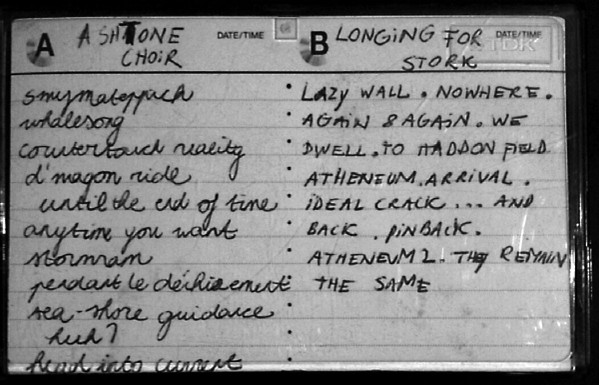 A ASHTONE DATE/TIME
CHOIR
whalesong
countertouch reality
d'magon ride
until the end of time
anytime you want
pendant le déchirement
sea-shore guidance
huh?
head into current
B LONGING FOR DATE/TIME
STORK
TDK
LAZY WALL . NOWHERE .
AGAIN & AGAIN . WE
DWELL . TO HADDON FIELD
ATHENEUM . ARRIVAL .
IDEAL CRACK ... AND
BACK . PINBACK .
ATHENEUM 2 . THEY REMAIN
THE SAME